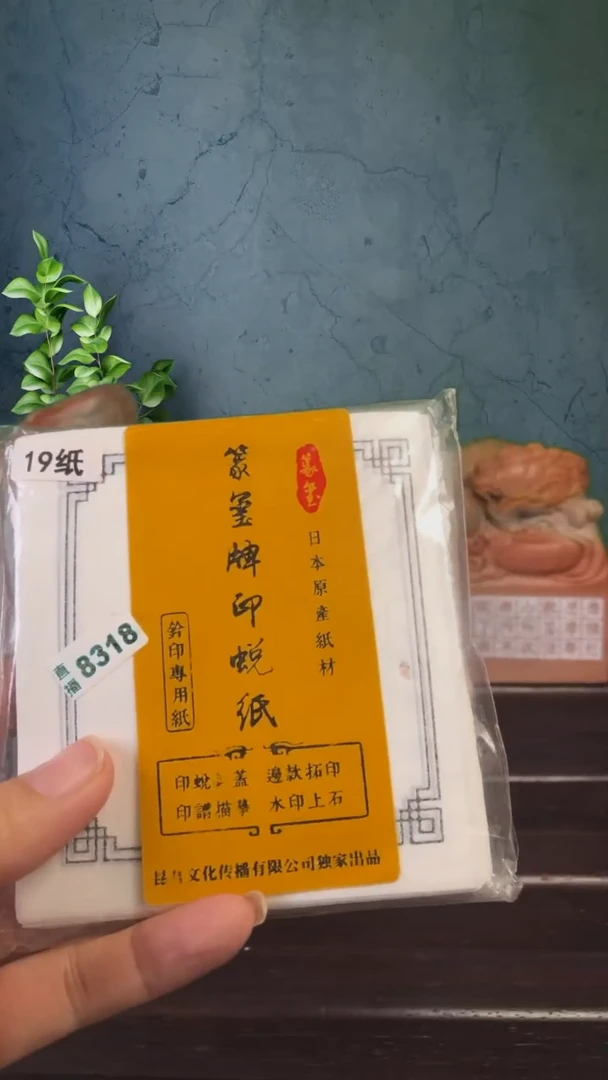 19纸
篆璽
日本原產紙材
篆璽牌印蜕紙
鈐印專用紙
直播8318
印蜕 蓋 邊款拓印
印譜描摹 水印上石
文化传播有限公司独家出品